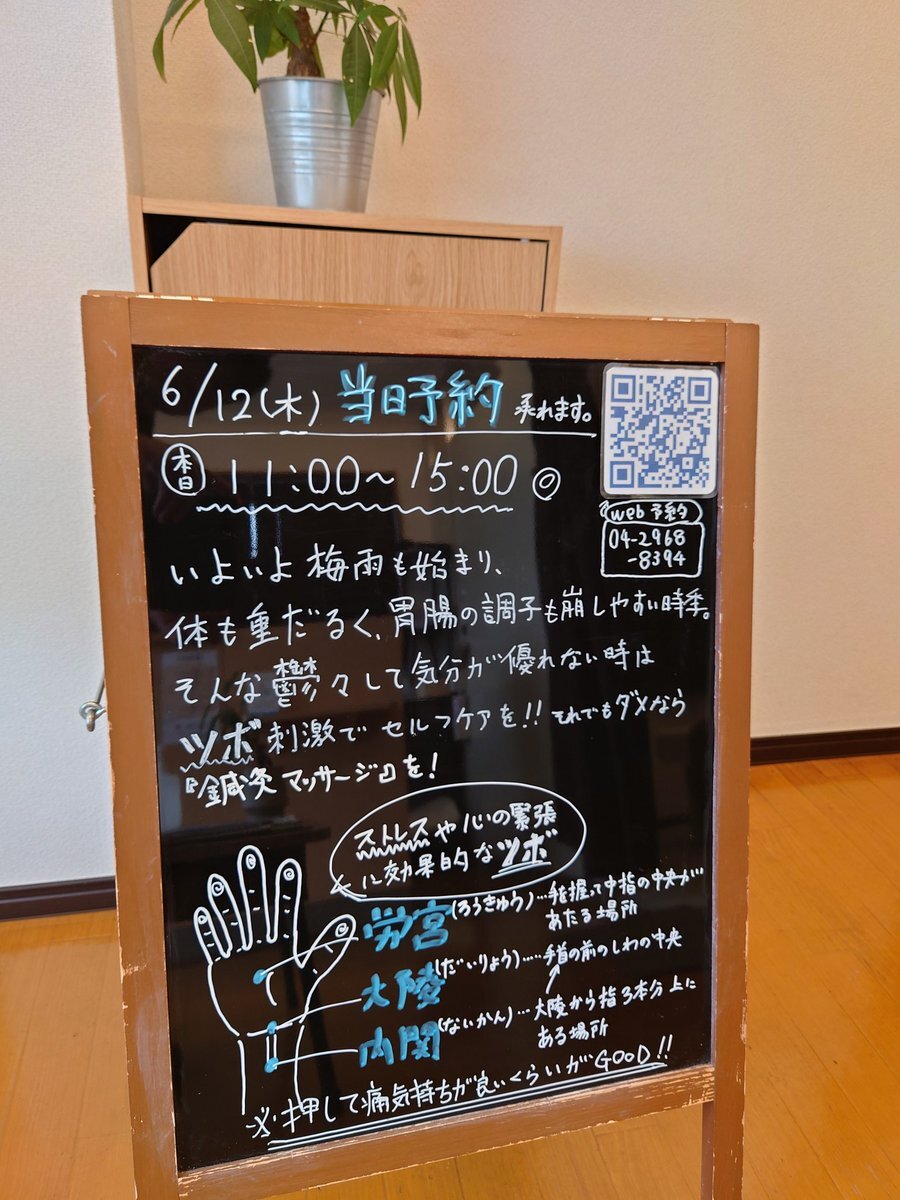 6/12(木) 当日予約 承れます。
本日 11:00~15:00 ◎
web予約
04-2968
-8394
いよいよ梅雨も始まり、
体も重だるく、胃腸の調子も崩しやすい時季。
そんな鬱々して気分が優れない時は
ツボ刺激でセルフケアを!! それでもダメなら
『鍼灸マッサージ』を!
ストレスや心の緊張
に効果的なツボ
労宮(ろうきゅう)…手を握って中指の中央が
あたる場所
大陵(だいりょう)……手首の前のしわの中央
内関(ないかん)…大陵から指3本分上に
ある場所
※押して痛気持ちが良いくらいがGOOD!!